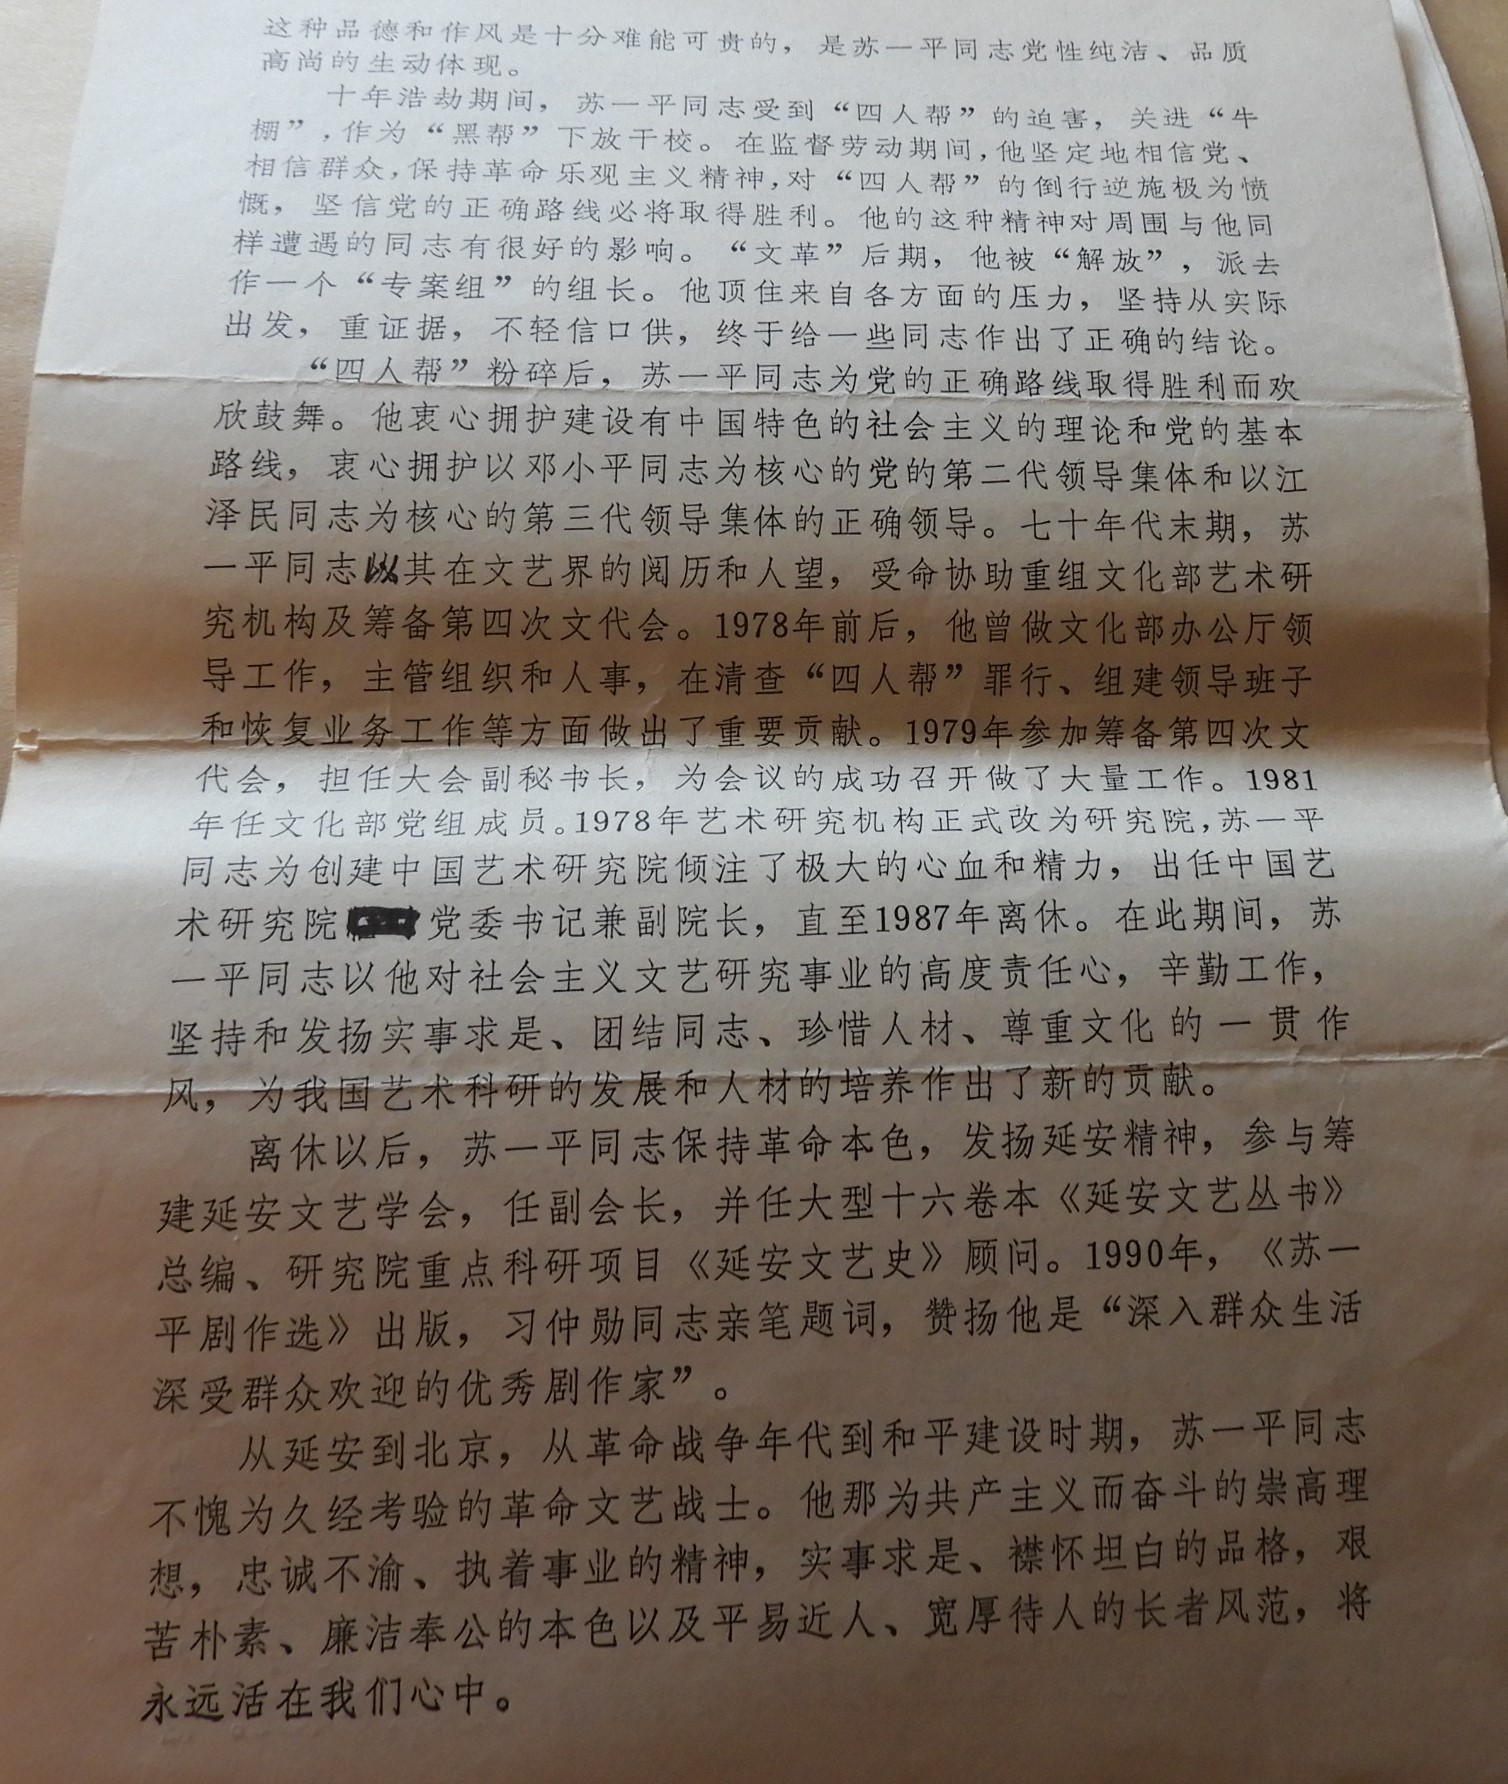 这种品德和作风是十分难能可贵的，是苏一平同志党性纯洁、品质
高尚的生动体现。
十年浩劫期间，苏一平同志受到“四人帮”的迫害，关进“牛
棚”，作为“黑帮”下放干校。在监督劳动期间，他坚定地相信党、
相信群众，保持革命乐观主义精神，对“四人帮”的倒行逆施极为愤
慨，坚信党的正确路线必将取得胜利。他的这种精神对周围与他同
样遭遇的同志有很好的影响。“文革”后期，他被“解放”，派去
作一个“专案组”的组长。他顶住来自各方面的压力，坚持从实际
出发，重证据，不轻信口供，终于给一些同志作出了正确的结论。
“四人帮”粉碎后，苏一平同志为党的正确路线取得胜利而欢
欣鼓舞。他衷心拥护建设有中国特色的社会主义的理论和党的基本
路线，衷心拥护以邓小平同志为核心的党的第二代领导集体和以江
泽民同志为核心的第三代领导集体的正确领导。七十年代末期，苏
一平同志以其在文艺界的阅历和人望，受命协助重组文化部艺术研
究机构及筹备第四次文代会。1978年前后，他曾做文化部办公厅领
导工作，主管组织和人事，在清查“四人帮”罪行、组建领导班子
和恢复业务工作等方面做出了重要贡献。1979年参加筹备第四次文
代会，担任大会副秘书长，为会议的成功召开做了大量工作。1981
年任文化部党组成员。1978年艺术研究机构正式改为研究院，苏一平
同志为创建中国艺术研究院倾注了极大的心血和精力，出任中国艺
术研究院党委书记兼副院长，直至1987年离休。在此期间，苏
一平同志以他对社会主义文艺研究事业的高度责任心，辛勤工作，
坚持和发扬实事求是、团结同志、珍惜人材、尊重文化的一贯作
风，为我国艺术科研的发展和人材的培养作出了新的贡献。
离休以后，苏一平同志保持革命本色，发扬延安精神，参与筹
建延安文艺学会，任副会长，并任大型十六卷本《延安文艺丛书》
总编、研究院重点科研项目《延安文艺史》顾问。1990年，《苏一
平剧作选》出版，习仲勋同志亲笔题词，赞扬他是“深入群众生活
深受群众欢迎的优秀剧作家”。
从延安到北京，从革命战争年代到和平建设时期，苏一平同志
不愧为久经考验的革命文艺战士。他那为共产主义而奋斗的崇高理
想，忠诚不渝、执着事业的精神，实事求是、襟怀坦白的品格，艰
苦朴素、廉洁奉公的本色以及平易近人、宽厚待人的长者风范，将
永远活在我们心中。